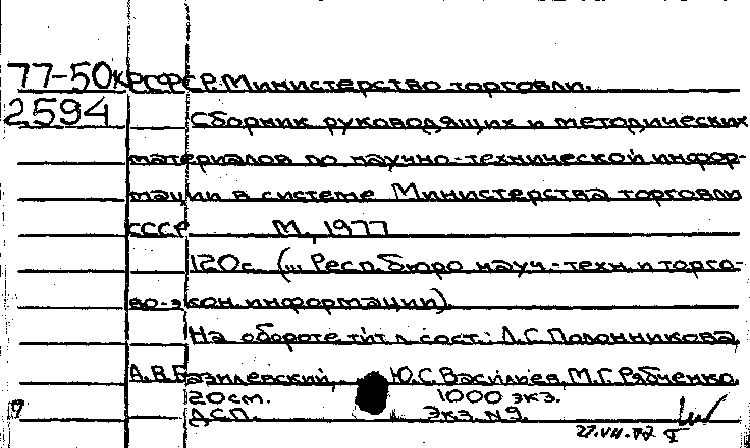 77-50к РСФСР. Министерство торговли.
2594 Сборник руководящих и методических
материалов по научно-технической инфор-
мации в системе Министерства торговли
СССР М., 1977
120с. (... Респ. бюро науч.-техн. и торго-
во-экон. информации).
На обороте тит. л. сост.: Л.С. Полонникова,
А.В. Базилевский, Ю.С. Васильев, М.Г. Рябченко.
20см. 1000 экз.
ДСП. Экз. №9.
27.VII.77